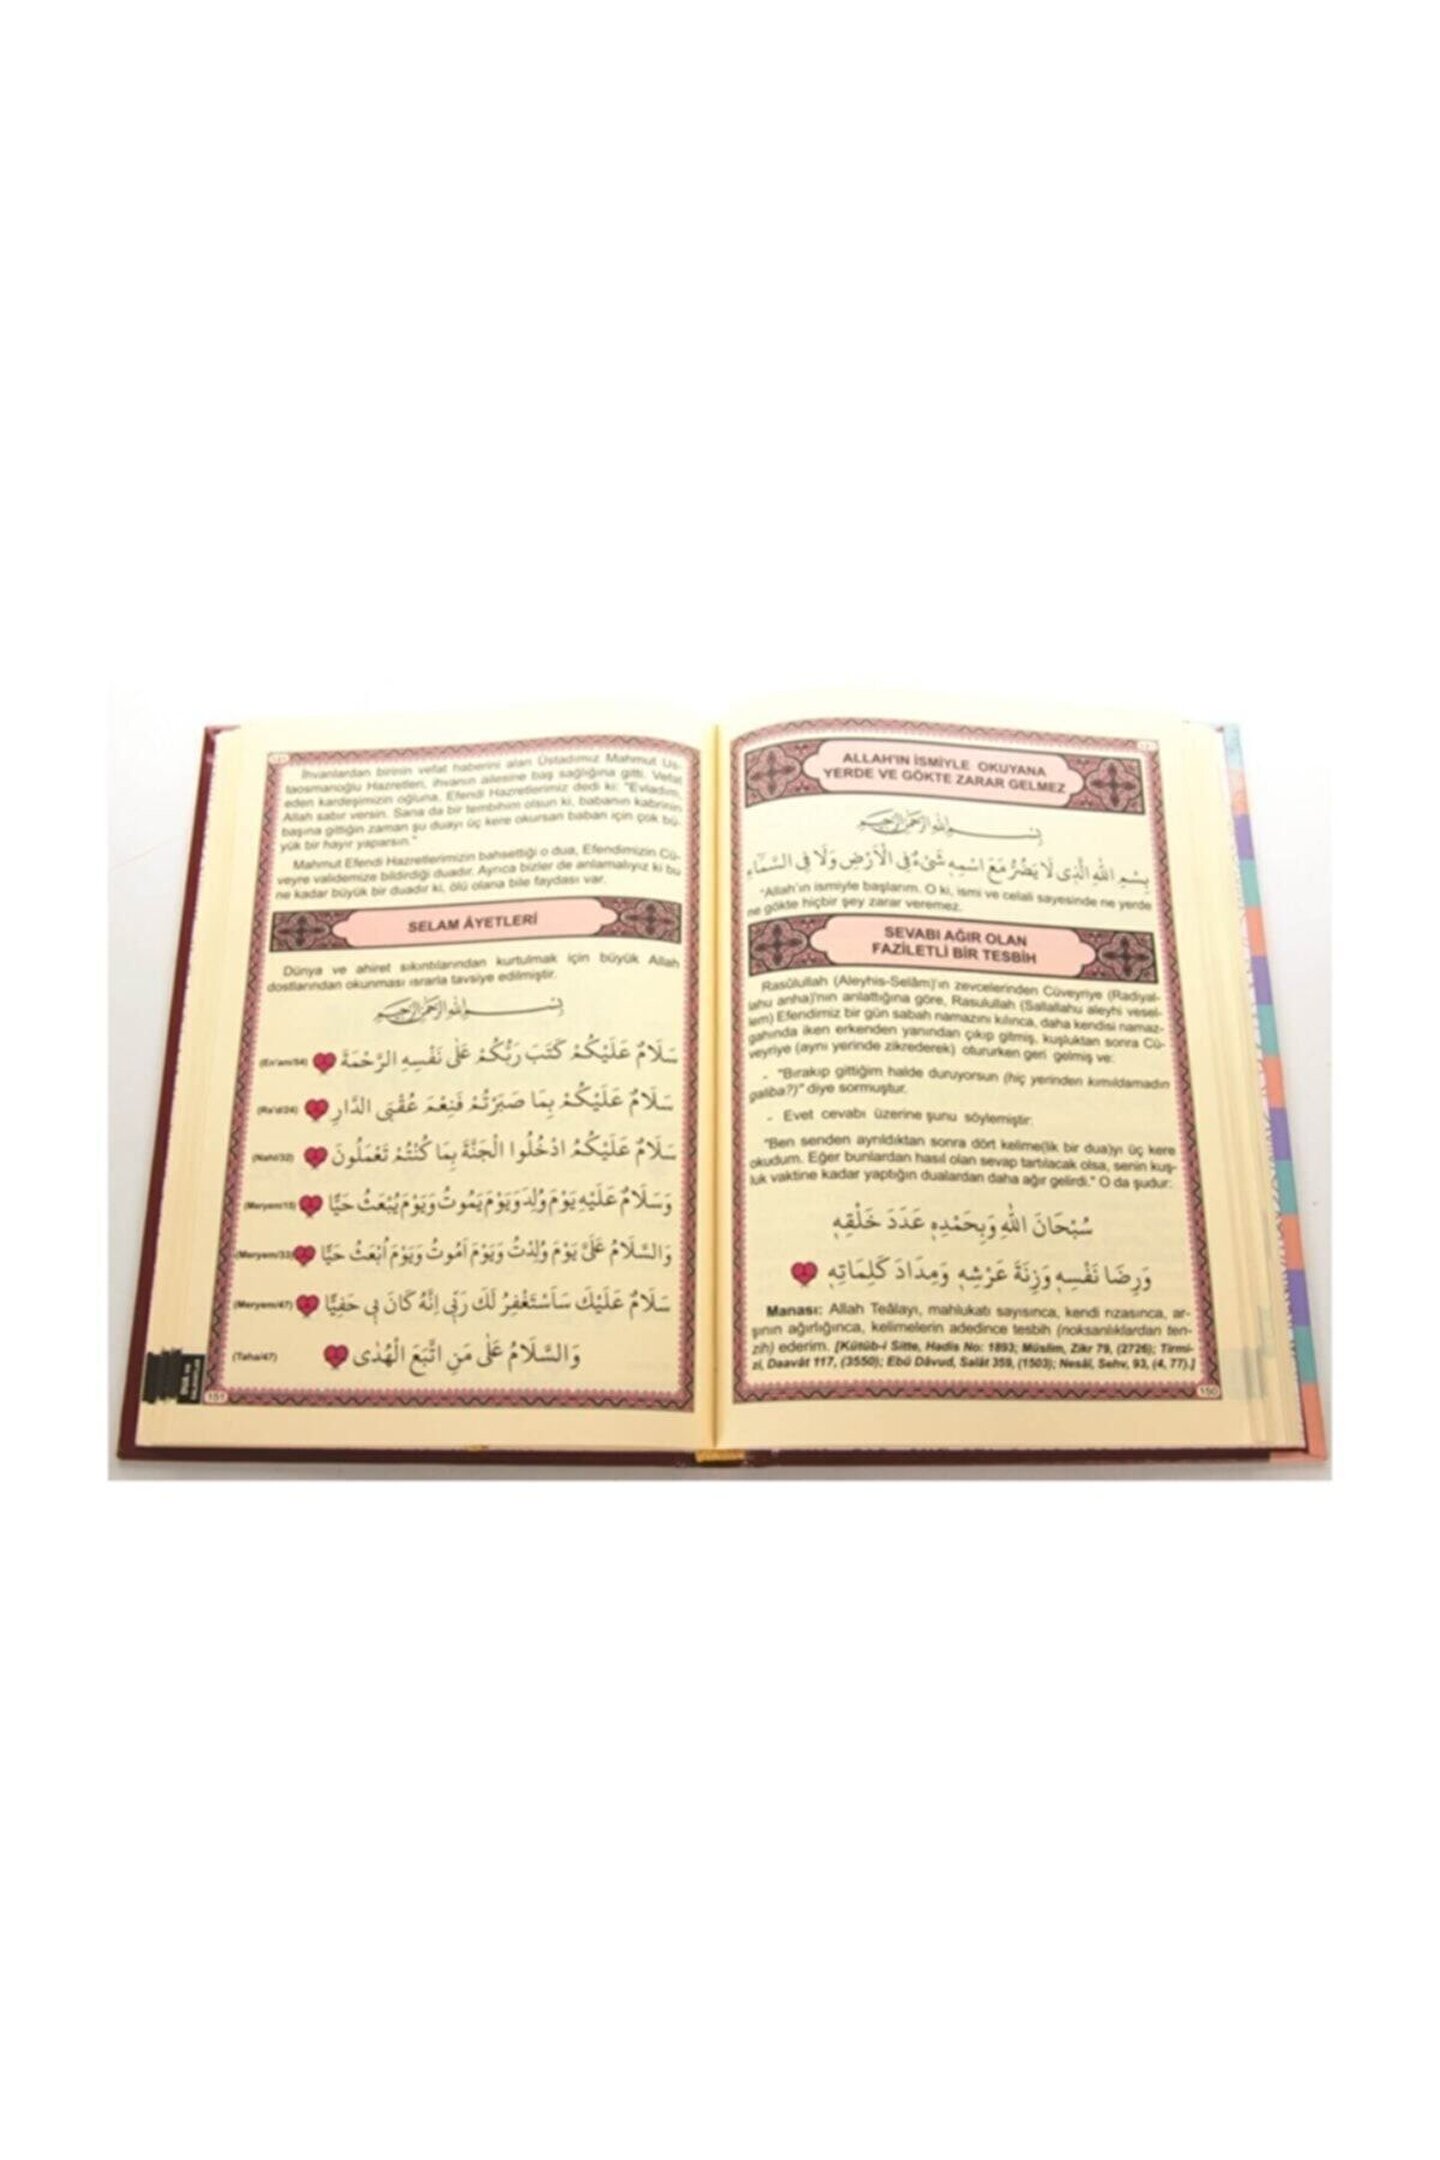 ALLAH'IN İSMİYLE OKUYANA
YERDE VE GÖKTE ZARAR GELMEZ
بِسْمِ اللهِ الرَّحْمٰنِ الرَّحِيمِ
بِسْمِ اللهِ الَّذِى لَا يَضُرُّ مَعَ اسْمِهِ شَىْءٌ فِى الْاَرْضِ وَلَا فِى السَّمَاءِ
"Allah'ın ismiyle başlarım. O ki, ismi ve celali sayesinde ne yerde
ne gökte hiçbir şey zarar veremez.
SEVABI AĞIR OLAN
FAZİLETLİ BİR TESBİH
Rasûlullah (Aleyhis-Selâm)'ın zevcelerinden Cüveyriye (Radiyal-
lahu anha)'nın anlattığına göre, Rasulullah (Sallallahu aleyhi vesel-
lem) Efendimiz bir gün sabah namazını kılınca, daha kendisi namaz-
gahında iken erkenden yanından çıkıp gitmiş, kuşluktan sonra Cü-
veyriye (aynı yerinde zikrederek) otururken geri gelmiş ve:
- "Bırakıp gittiğim halde duruyorsun (hiç yerinden kımıldamadın
galiba?)" diye sormuştur.
- Evet cevabı üzerine şunu söylemiştir:
"Ben senden ayrıldıktan sonra dört kelime(lik bir dua)yı üç kere
okudum. Eğer bunlardan hasıl olan sevap tartılacak olsa, senin kuş-
luk vaktine kadar yaptığın dualardan daha ağır gelirdi." O da şudur:
سُبْحَانَ اللهِ وَبِحَمْدِهِ عَدَدَ خَلْقِهِ
وَرِضَا نَفْسِهِ وَزِنَةَ عَرْشِهِ وَمِدَادَ كَلِمَاتِهِ
Manası: Allah Teâlayı, mahlukatı sayısınca, kendi rızasınca, ar-
şının ağırlığınca, kelimelerin adedince tesbih (noksanlıklardan ten-
zih) ederim. [Kütüb-i Sitte, Hadis No: 1893; Müslim, Zikr 79, (2726); Tirmi-
zi, Daavât 117, (3550); Ebû Dâvud, Salât 359, (1503); Nesâi, Sehv, 93, (4, 77).]
150
İhvanlardan birinin vefat haberini alan Üstadımız Mahmut Us-
taosmanoğlu Hazretleri, ihvanın ailesine baş sağlığına gitti. Vefat
eden kardeşimizin oğluna, Efendi Hazretlerimiz dedi ki: "Evladım,
Allah sabır versin. Sana da bir tembihim olsun ki, babanın kabrinin
başına gittiğin zaman şu duayı üç kere okursan baban için çok bü-
yük bir hayır yaparsın."
Mahmut Efendi Hazretlerimizin bahsettiği o dua, Efendimizin Cü-
veyre validemize bildirdiği duadır. Ayrıca bizler de anlamalıyız ki bu
ne kadar büyük bir duadır ki, ölü olana bile faydası var.
SELAM ÂYETLERİ
Dünya ve ahiret sıkıntılarından kurtulmak için büyük Allah
dostlarından okunması ısrarla tavsiye edilmiştir.
بِسْمِ اللهِ الرَّحْمٰنِ الرَّحِيمِ
سَلَامٌ عَلَيْكُمْ كَتَبَ رَبُّكُمْ عَلٰى نَفْسِهِ الرَّحْمَةَ (En'am/54)
سَلَامٌ عَلَيْكُمْ بِمَا صَبَرْتُمْ فَنِعْمَ عُقْبَى الدَّارِ (Ra'd/24)
سَلَامٌ عَلَيْكُمُ ادْخُلُوا الْجَنَّةَ بِمَا كُنْتُمْ تَعْمَلُونَ (Nahl/32)
وَسَلَامٌ عَلَيْهِ يَوْمَ وُلِدَ وَيَوْمَ يَمُوتُ وَيَوْمَ يُبْعَثُ حَيًّا (Meryem/15)
وَالسَّلَامُ عَلَىَّ يَوْمَ وُلِدْتُ وَيَوْمَ اَمُوتُ وَيَوْمَ اُبْعَثُ حَيًّا (Meryem/33)
سَلَامٌ عَلَيْكَ سَاَسْتَغْفِرُ لَكَ رَبِّى اِنَّهُ كَانَ بِى حَفِيًّا (Meryem/47)
وَالسَّلَامُ عَلٰى مَنِ اتَّبَعَ الْهُدٰى (Taha/47)
151